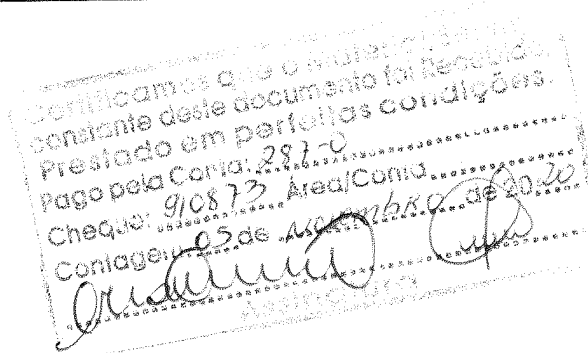 Certificamos que o Material/Serviço
constante deste documento foi Recebido,
Prestado em perfeitas condições.
Pago pela Conta: 287-0
Cheque: 910873 Área/Conta
Contagem, 05 de novembro de 2020
Assinatura